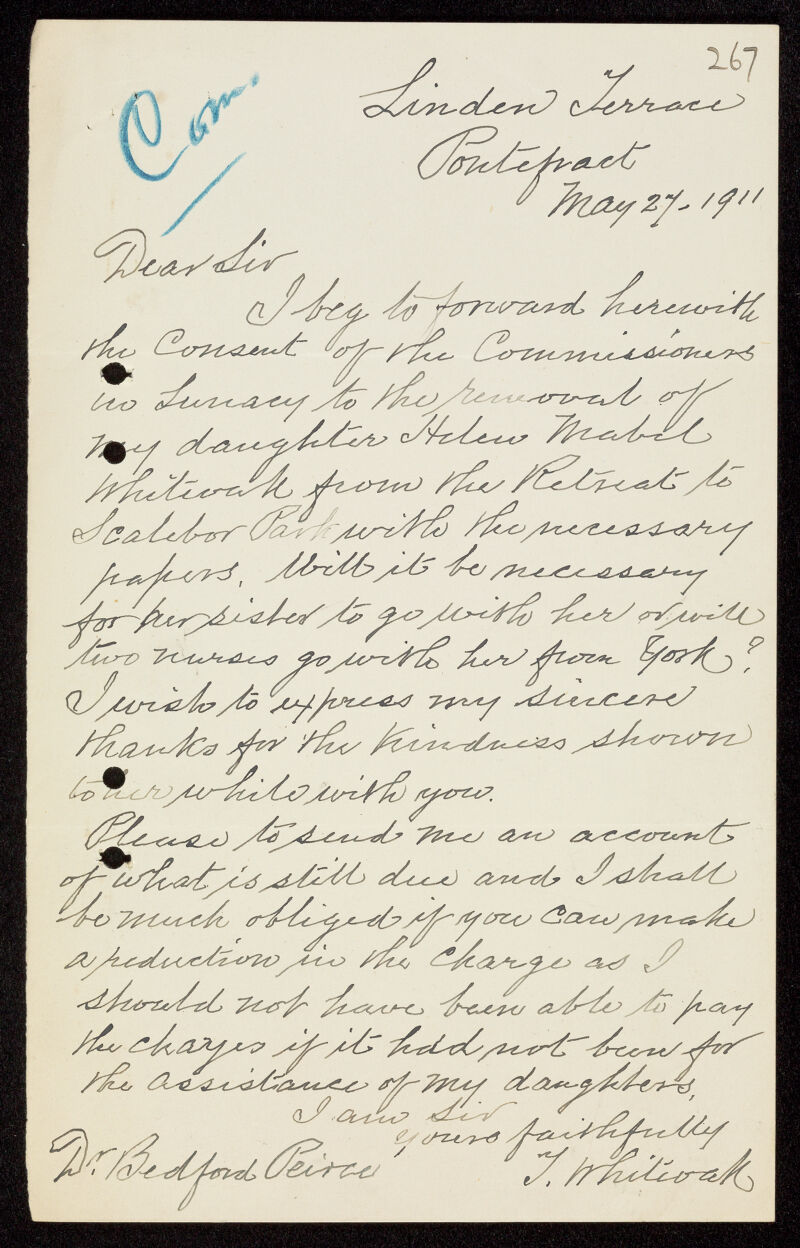 267
Com.
Linden Terrace
Pontefract
May 27. 1911
Dear Sir
I beg to forward herewith
the Consent of the Commissioners
in Lunacy to the removal of
my daughter Helen Mabel
Whitwak from the Retreat to
Scalebor Park with the necessary
papers. Will it be necessary
for her sister to go with her or will
two nurses go with her from York?
I wish to express my sincere
thanks for the kindness shown
to her while with you.
Please to send me an account
of what is still due and I shall
be much obliged if you can make
a reduction in the charge as I
should not have been able to pay
the charges if it had not been for
the assistance of my daughters.
I am Sir
yours faithfully
Dr. Bedford Peirce
T. Whitwak